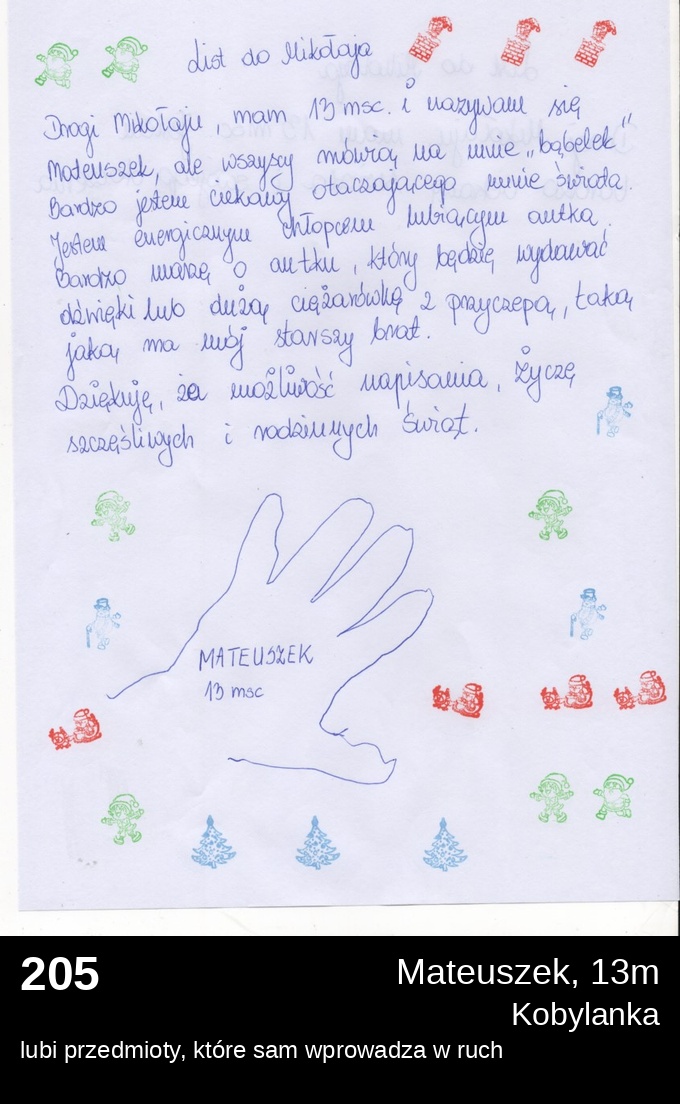 List do Mikołaja
Drogi Mikołaju, mam 13 msc. i nazywam się
Mateuszek, ale wszyscy mówią na mnie „bąbelek"
Bardzo jestem ciekawy otaczającego mnie świata.
Jestem energicznym chłopcem lubiącym autka.
Bardzo marzę o autku, który będzie wydawać
dźwięki lub dużą ciężarówkę z przyczepą, taką
jaką ma mój starszy brat.
Dziękuję, za możliwość napisania, życzę
szczęśliwych i rodzinnych świąt.
MATEUSZEK
13 msc
205
Mateuszek, 13m
Kobylanka
lubi przedmioty, które sam wprowadza w ruch